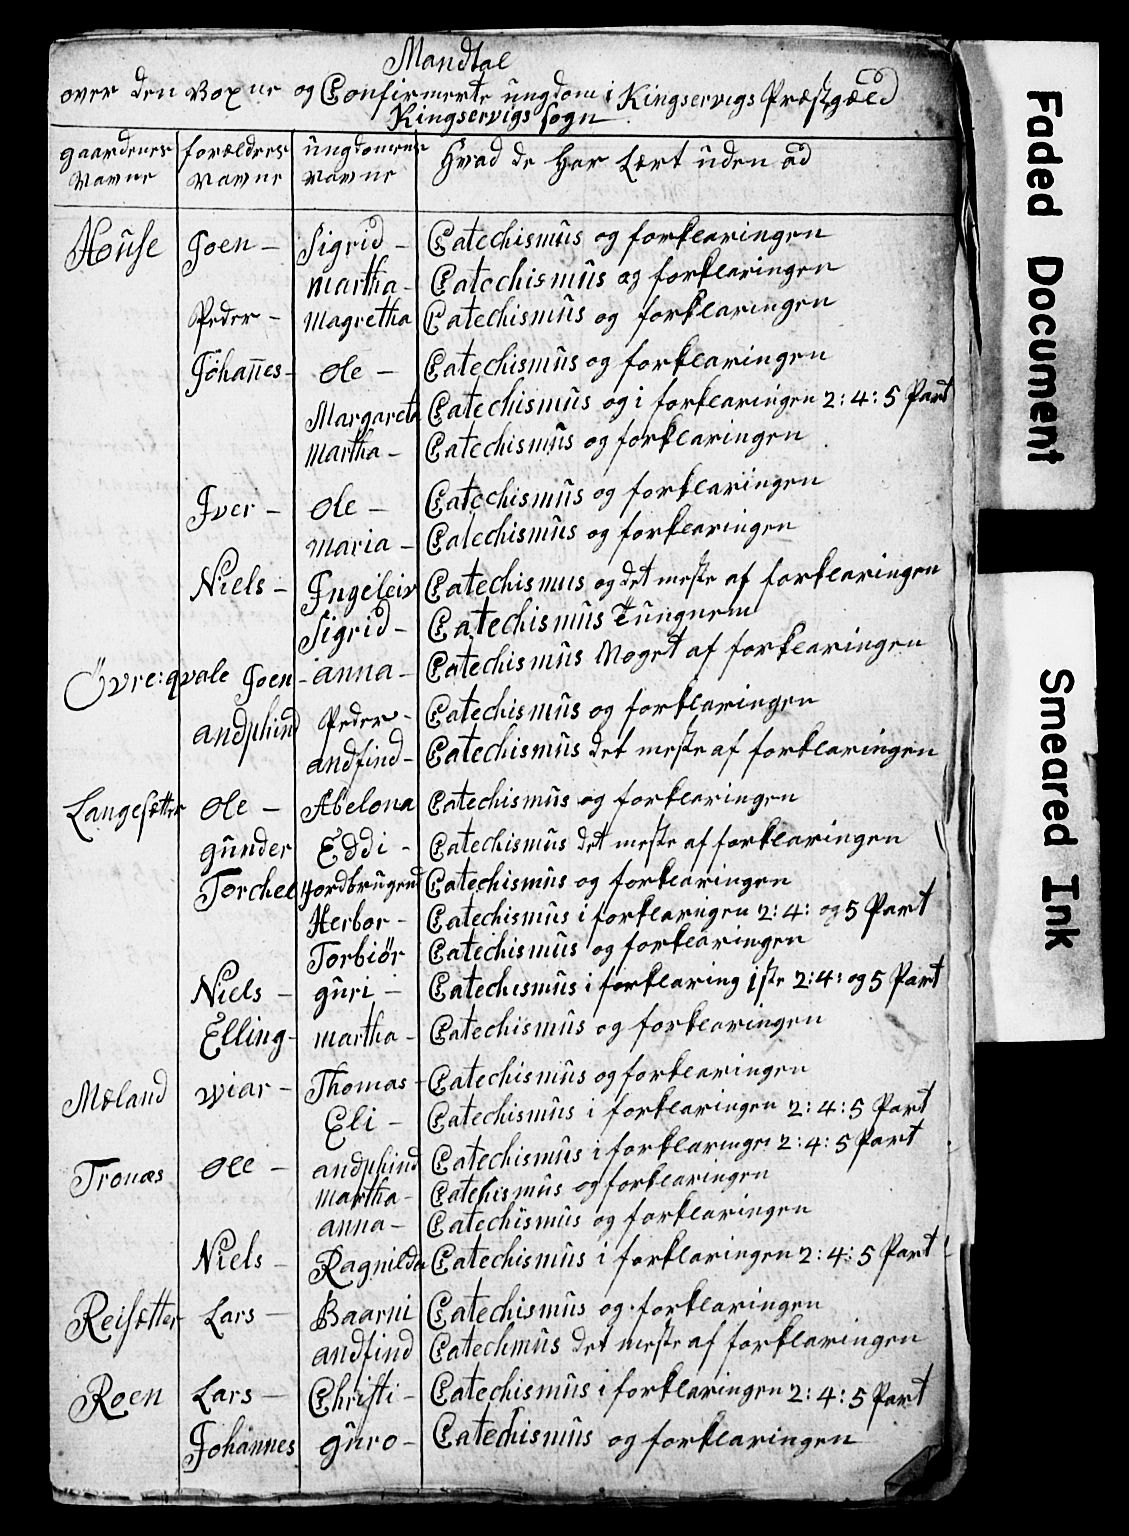 Mandtal
over den voxne og Confirmerte ungdom i Kingservigs Præstgæld
Kingservigs Sogn
gaardenes navne forældres navne ungdomens navne Hvad de har Lært uden ad
House Joen – Sigrid – Catechismus og forklaringen
martha – Catechismus og forklaringen
Peder – Magretha Catechismus og forklaringen
Johannes – Ole – Catechismus og forklaringen
Margareta Catechismus og i forklaringen 2:4:5 Part
Martha – Catechismus og forklaringen
Iver – Ole – Catechismus og forklaringen
Maria – Catechismus og forklaringen
Niels – Ingeleiv Catechismus og det meste af forklaringen
Sigrid – Catechismus tungnem
Övre:qvale Joen – anna – Catechismus Noget af forklaringen
andphind Peder – Catechismus og forklaringen
andfind – Catechismus det meste af forklaringen
Langesætter Ole – Abelona Catechismus og forklaringen
gunder Eddi – Catechismus det meste af forklaringen
Torchel Catechismus og forklaringen
Herbor – Catechismus i forklaringen 2:4: og 5 Part
Torbiör Catechismus og forklaringen
Niels – guri – Catechismus i forklaring 1ste 2:4: og 5 Part
Elling – martha – Catechismus og forklaringen
Mæland wiar – Thomas – Catechismus og forklaringen
Eli – Catechismus i forklaringen 2:4:5 Part
Tronæs Ole – andphind Catechismus i forklaringen 2:4:5 Part
martha – Catehismus og forklaringen
anna – Catechismus og forklaringen
Niels – Ragnilda Catechismus i forklaringen 2:4:5 Part
Reisætter Lars – Baarni Catechismus og forklaringen
andfind Catechmus det meste af forklaringen
Roen Lars – Christi – Catechismus i forklaringen 2:4:5 Part
Johannes guro – Catechismus og forklaringen
Faded Document
Smeared Ink